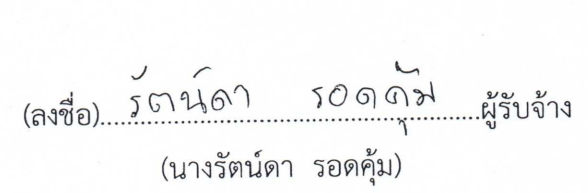 (ลงชื่อ)รัตน์ดา รอดคุ้ม ผู้รับจ้าง
(นางรัตน์ดา รอดคุ้ม)